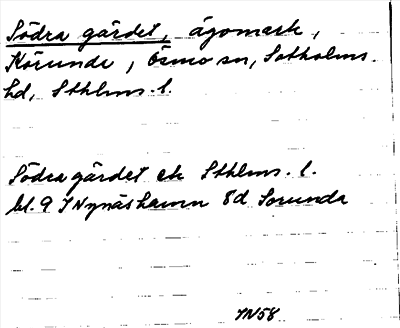 Södra gärdet, ägomark,
Körunda, Ösmo sn, Sotholms
hd, Sthlms. l.
Södra gärdet ek Sthlms. l.
bl. 9 I Nynäshamn 8d Sorunda